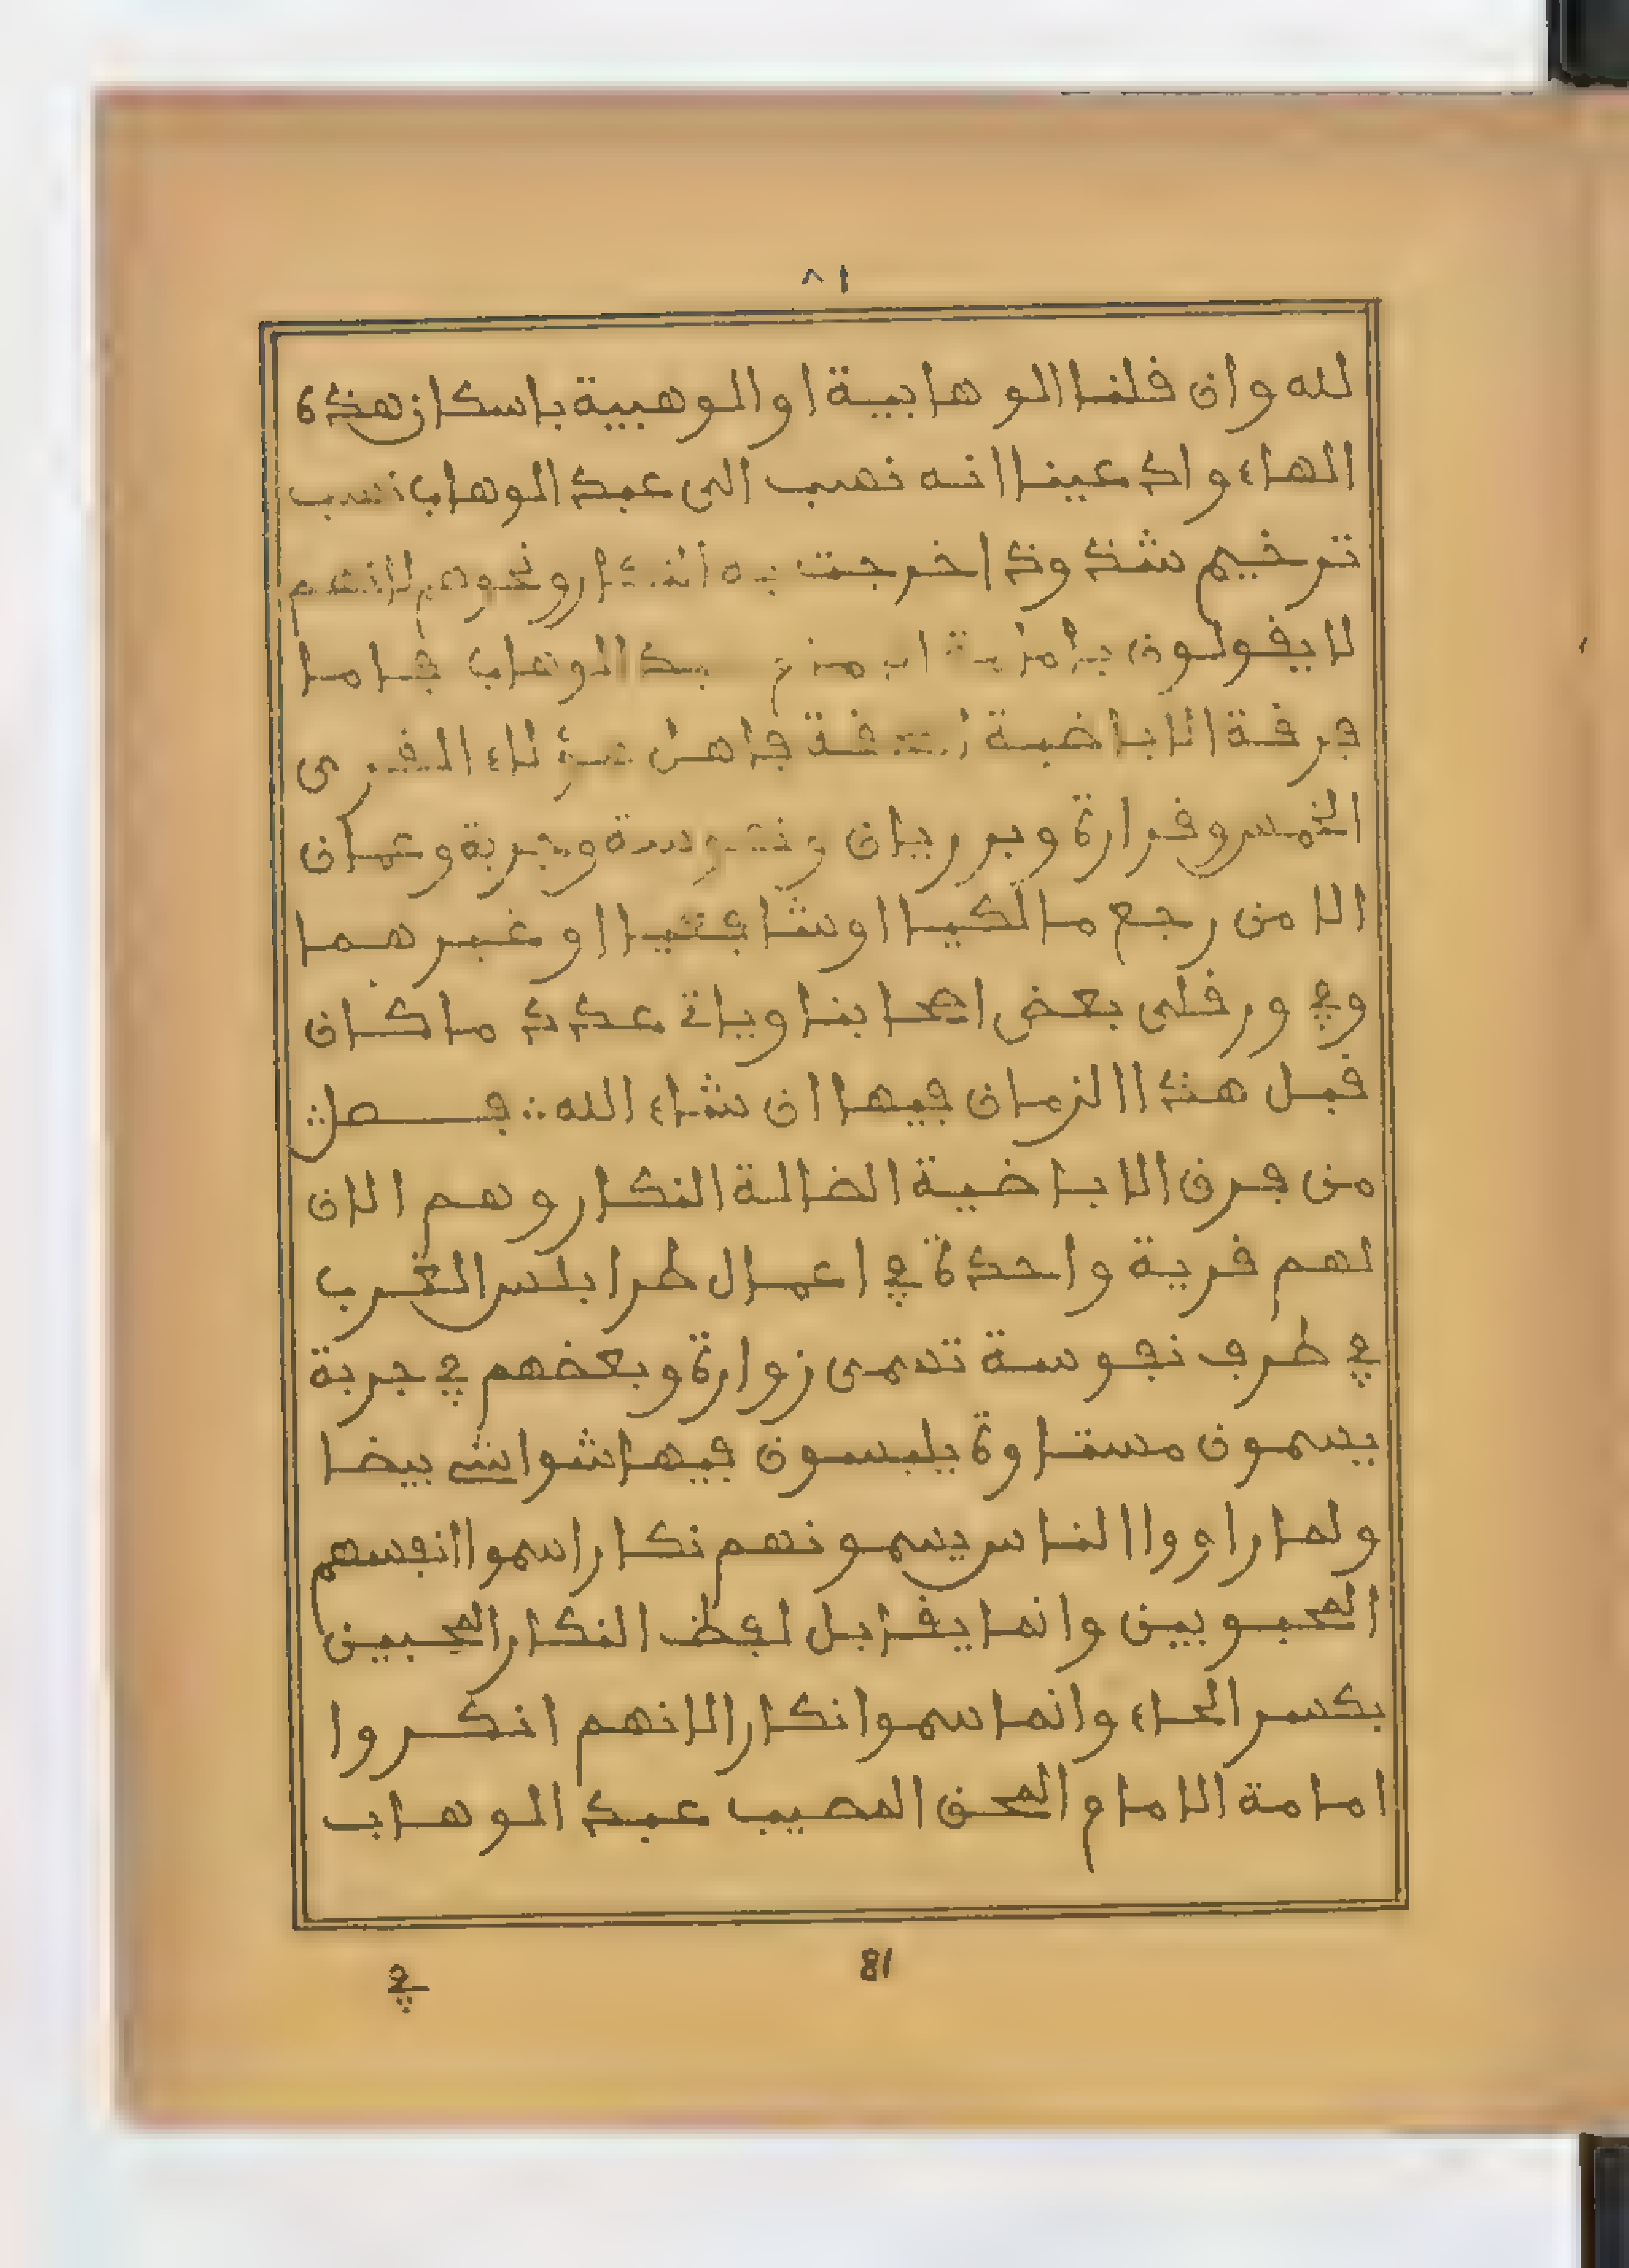 ٨١
لله وان قلنا الوهابية او الوهبية باسكان هذه
الهاء وادعينا انه نسب الى عبد الوهاب نسب
ترخيم شذوذ اخرجت به النكار ونحوهم لانهم
لا يقولون بامامة عبد الوهاب فاما
فرقة الاباضية فاهل هؤلاء القرى
الخمس وقرارة وبرريان ونفوسة وجربة وعمان
الا من رجع مالكيا او شافعيا او غيرهما
وفي ورقلى بعض اصحابنا وياتي عدد ما كان
قبل هذا الزمان فيها ان شاء الله ؞ فصل ؞
من فرق الاباضية الضالة النكار وهم الان
لهم قرية واحدة في اعمال طرابلس الغرب
في طرف نفوسة تسمى زوارة وبعضهم في جربة
يسمون مستاوة يلبسون فيها شواشي بيضا
ولما راووا الناس يسمونهم نكارا سموا انفسهم
المحبوبين وانما يقابل لفظ النكار المحبين
بكسر الحاء وانما سموا نكارا لانهم انكروا
امامة الامام المحق المصيب عبد الوهاب
81
في